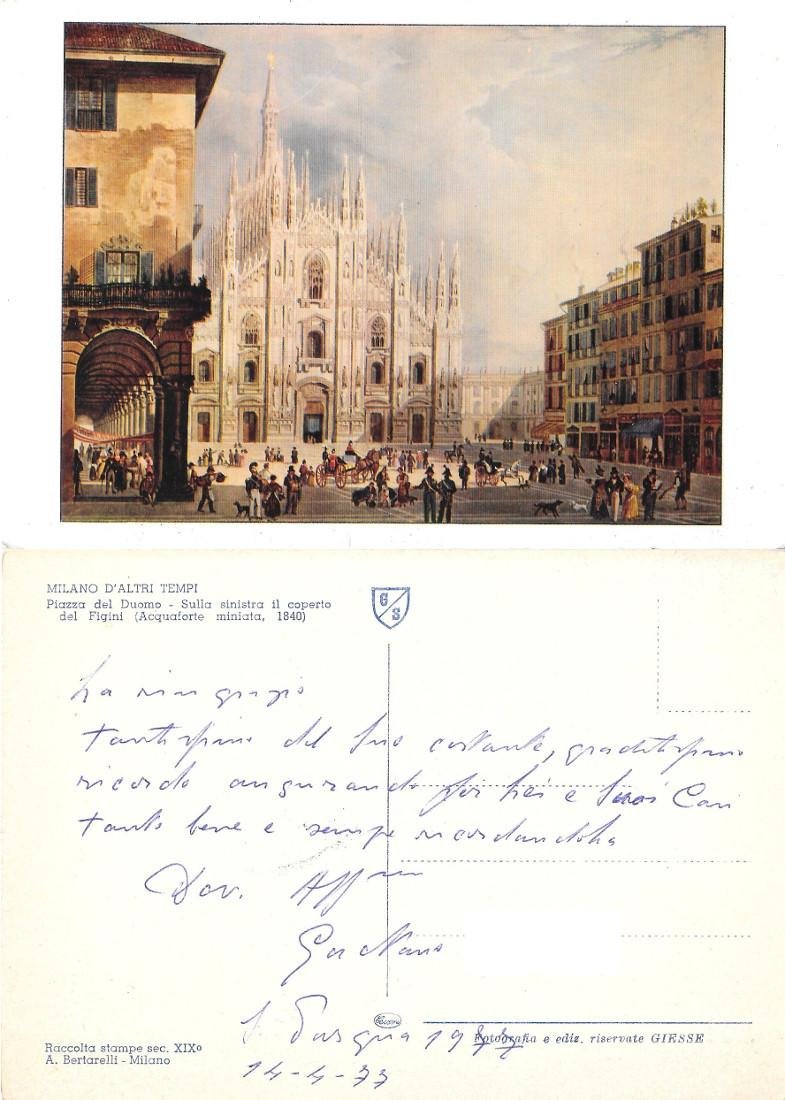 MILANO D'ALTRI TEMPI
Piazza del Duomo - Sulla sinistra il coperto
del Figini (Acquaforte miniata, 1840)
G S
La ringrazio
tantissimo del Suo costante, graditissimo
ricordo augurando per Lei e Suoi Cari
tanto bene e sempre ricordandoLa
Dev. Aff.mo
Gaetano
S. Pasqua 1977
14-4-77
Raccolta stampe sec. XIXº
A. Bertarelli - Milano
Fotografia e ediz. riservate GIESSE